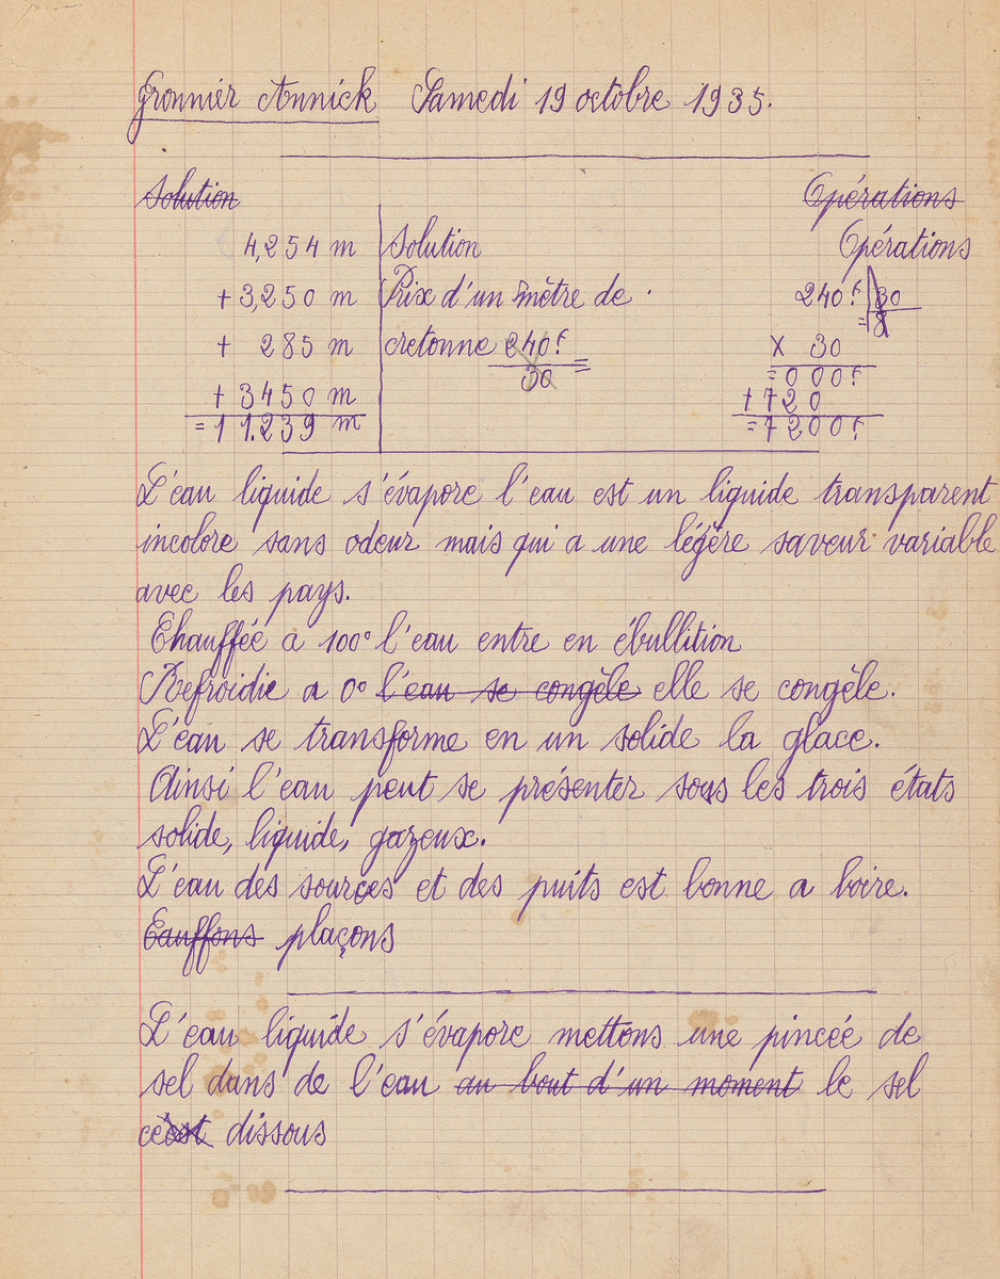 Gronnier Annick Samedi 19 octobre 1935.
Solution Opérations
4,254 m Solution Opérations
+ 3,250 m Prix d'un mètre de 240f 30
= 8
+ 285 m cretonne 240f = × 30
30
= 000f
+ 3450 m + 720
= 11.239 m = 7200f
L'eau liquide s'évapore l'eau est un liquide transparent
incolore sans odeur mais qui a une légère saveur variable
avec les pays.
Chauffée à 100° l'eau entre en ébullition
Refroidie a 0° l'eau se congèle elle se congèle.
L'eau se transforme en un solide la glace.
Ainsi l'eau peut se présenter sous les trois états
solide, liquide, gazeux.
L'eau des sources et des puits est bonne a boire.
Eauffons plaçons
L'eau liquide s'évapore mettons une pincée de
sel dans de l'eau au bout d'un moment le sel
dissous